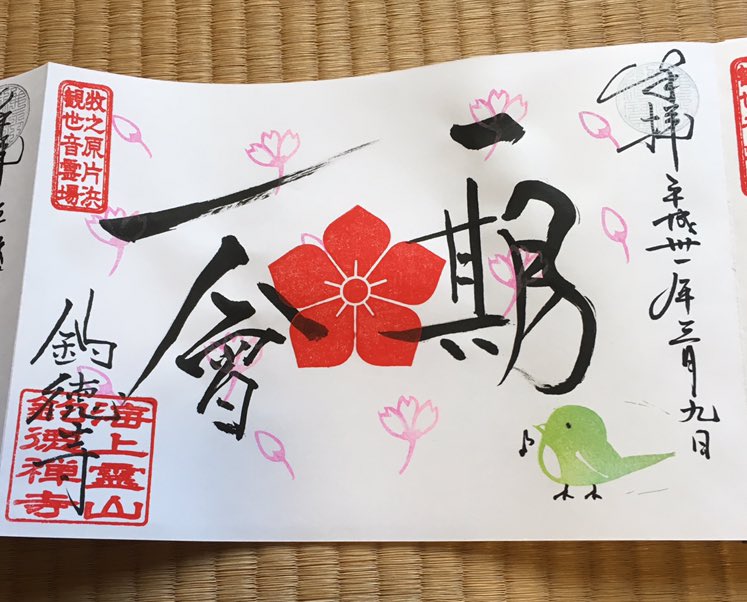 奉拝
平成卅一年三月九日
一期
一會
牧之原片浜
観世音霊場
釣徳寺
海上霊山
釣徳禅寺